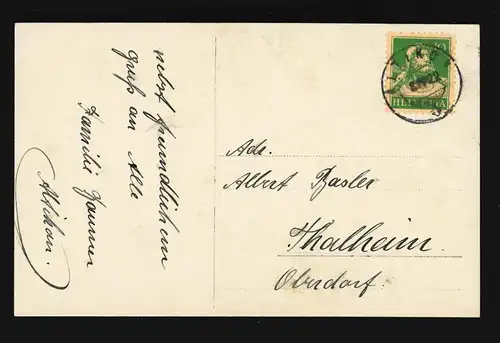 nebst freundlichem
gruß an Alle
Familie
Altikon.
10
HELVETIA
Adr.
Albert Basler
Thalheim.
Oberdorf.